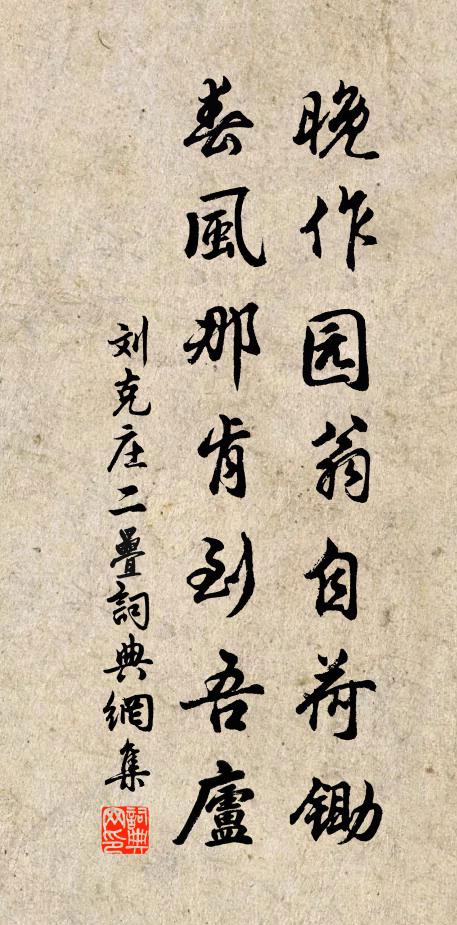 晚作园翁自荷锄
春風那肯到吾廬
刘克庄二疊詞典網集
詞典
网印